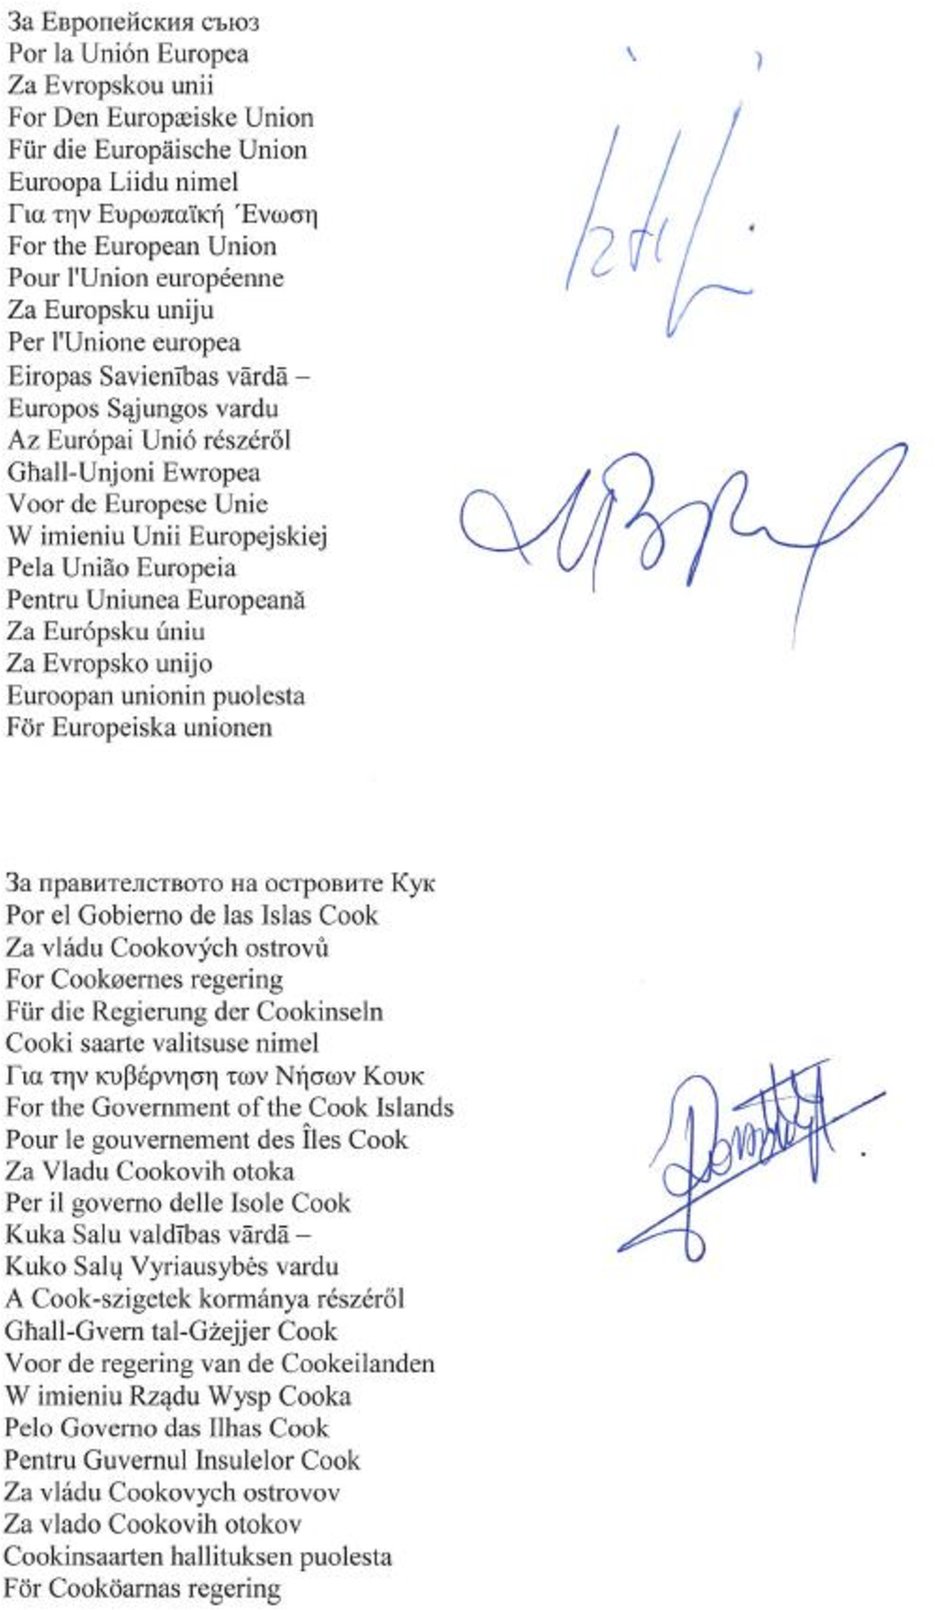 За Европейския съюз
Por la Unión Europea
Za Evropskou unii
For Den Europæiske Union
Für die Europäische Union
Euroopa Liidu nimel
Για την Ευρωπαϊκή Ένωση
For the European Union
Pour l'Union européenne
Za Europsku uniju
Per l'Unione europea
Eiropas Savienības vārdā –
Europos Sąjungos vardu
Az Európai Unió részéről
Għall-Unjoni Ewropea
Voor de Europese Unie
W imieniu Unii Europejskiej
Pela União Europeia
Pentru Uniunea Europeană
Za Európsku úniu
Za Evropsko unijo
Euroopan unionin puolesta
För Europeiska unionen
За правителството на островите Кук
Por el Gobierno de las Islas Cook
Za vládu Cookových ostrovů
For Cookøernes regering
Für die Regierung der Cookinseln
Cooki saarte valitsuse nimel
Για την κυβέρνηση των Νήσων Κουκ
For the Government of the Cook Islands
Pour le gouvernement des Îles Cook
Za Vladu Cookovih otoka
Per il governo delle Isole Cook
Kuka Salu valdības vārdā –
Kuko Salų Vyriausybės vardu
A Cook-szigetek kormánya részéről
Għall-Gvern tal-Gżejjer Cook
Voor de regering van de Cookeilanden
W imieniu Rządu Wysp Cooka
Pelo Governo das Ilhas Cook
Pentru Guvernul Insulelor Cook
Za vládu Cookovych ostrovov
Za vlado Cookovih otokov
Cookinsaarten hallituksen puolesta
För Cooköarnas regering